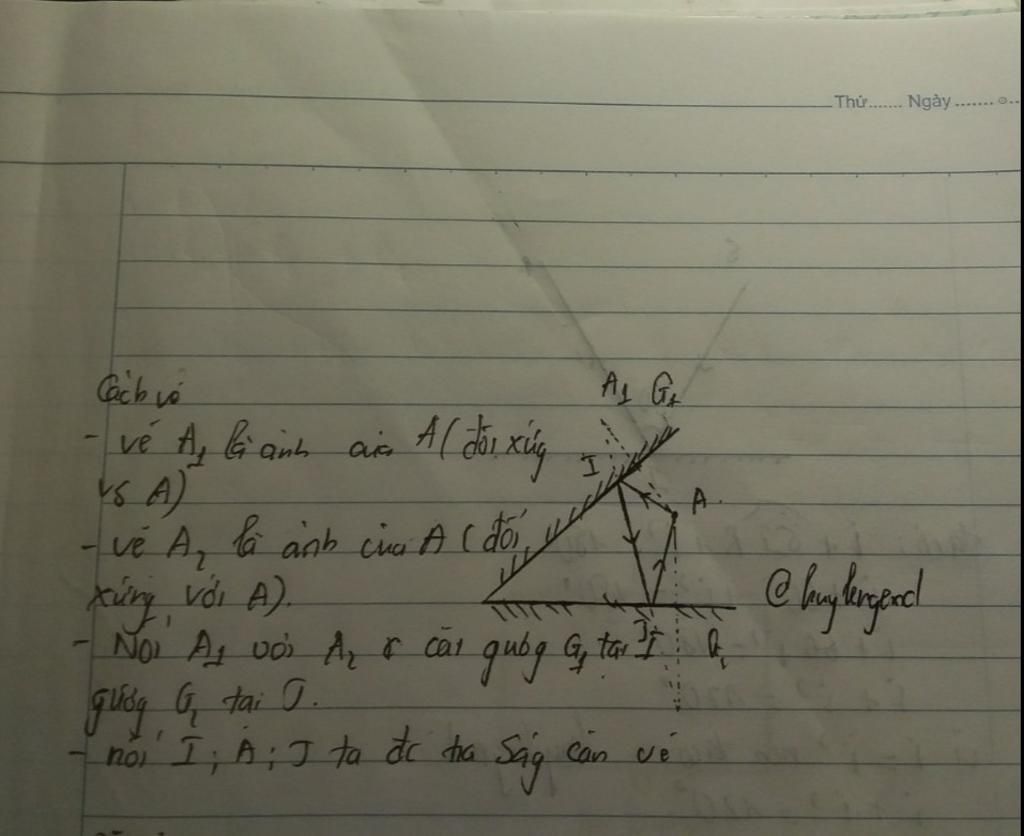 Thứ....... Ngày.......
Cách vẽ
- vẽ A1 là ảnh của A (đối xứg
vs A)
- vẽ A2 là ảnh của A (đối
xứng với A).
- Nối A1 với A2 cắt gươg G1 tại I
gươg G2 tại J.
- nối I; A; J ta đc tia Ság cần vẽ
A1 G1
I
A
@huylengend
J